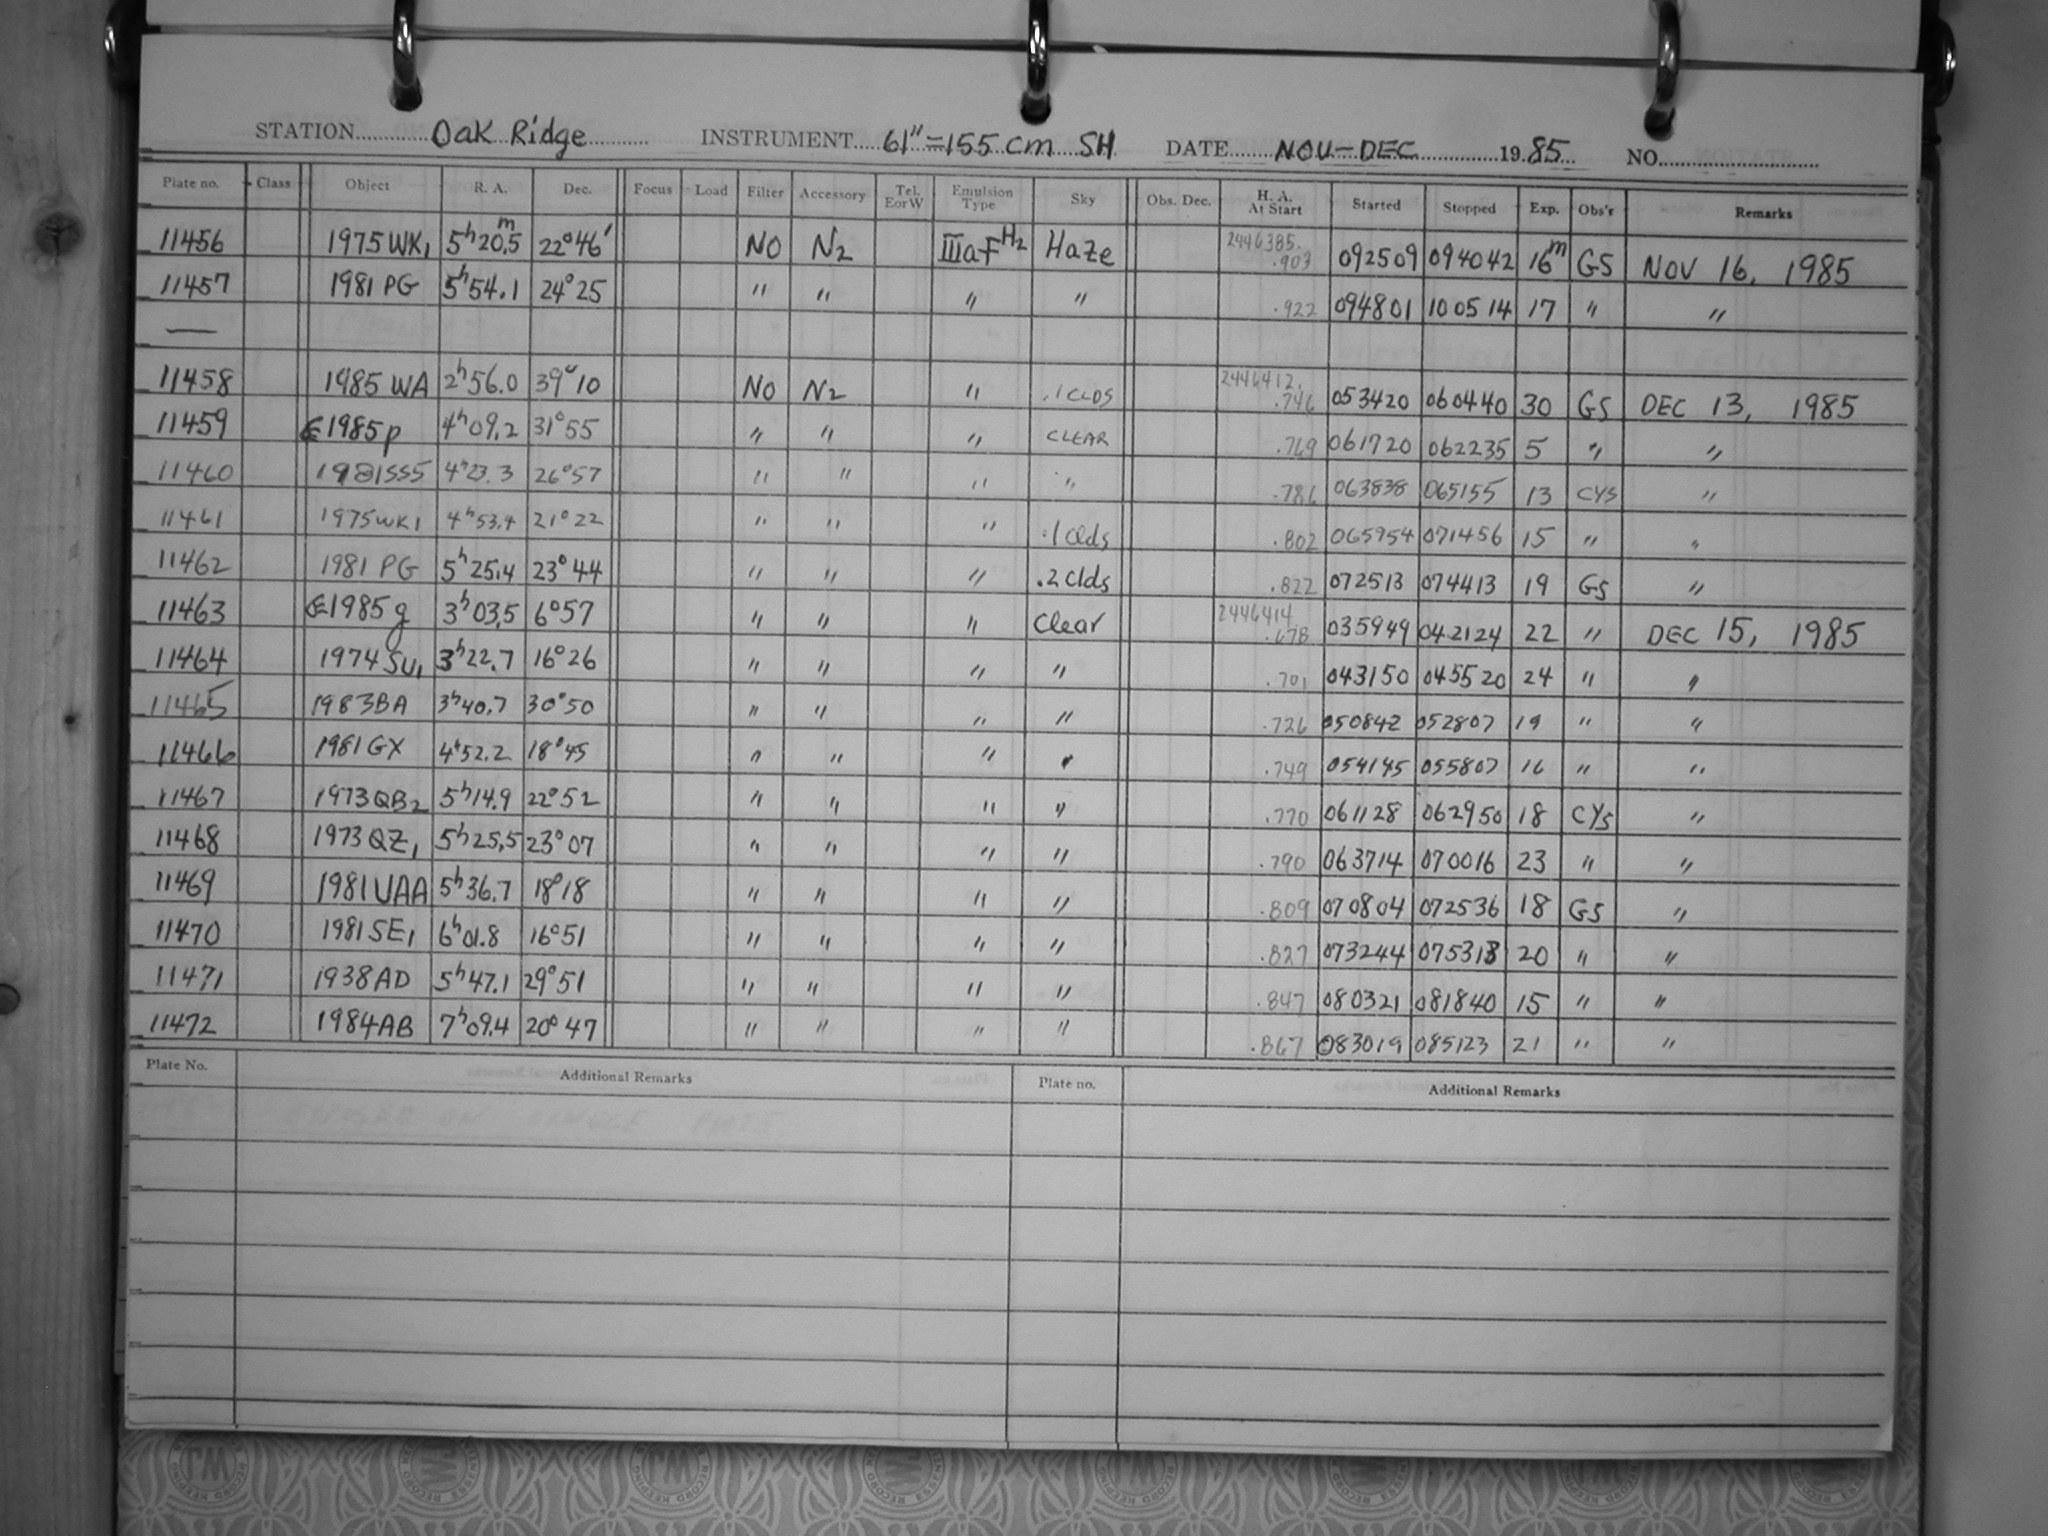 STATION Oak Ridge INSTRUMENT 61"=155 cm SH DATE NOV-DEC 1985 NO.
Plate no. Class Object R. A. Dec. Focus Load Filter Accessory Tel. E or W Emulsion Type Sky Obs. Dec. H. A. At Start Started Stopped Exp. Obs'r Remarks
11456 1975 WK₁ 5ʰ20.5ᵐ 22°46' NO N₂ IIIaF H₂ Haze 2446385. .903 092509 094042 16ᵐ GS NOV 16, 1985
11457 1981 PG 5ʰ54.1 24°25 " " " " .922 094801 100514 17 " "
—
11458 1985 WA 2ʰ56.0 39°10 NO N₂ " .1 CLDS 2446412. .746 053420 060440 30 GS DEC 13, 1985
11459 1985p 4ʰ09.2 31°55 " " " CLEAR .769 061720 062235 5 " "
11460 1981SS5 4ʰ23.3 26°57 " " " " .786 063838 065155 13 CYS "
11461 1975WK1 4ʰ53.4 21°22 " " " .1 Clds .802 065954 071456 15 " "
11462 1981 PG 5ʰ25.4 23°44 " " " .2 Clds .822 072513 074413 19 GS "
11463 1985g 3ʰ03.5 6°57 " " " Clear 2446414. .678 035949 042124 22 " DEC 15, 1985
11464 1974 SU₁ 3ʰ22.7 16°26 " " " " .701 043150 045520 24 " "
11465 1983BA 3ʰ40.7 30°50 " " " " .726 050842 052807 19 " "
11466 1981GX 4ʰ52.2 18°45 " " " " .749 054145 055807 16 " "
11467 1973QB₂ 5ʰ14.9 22°52 " " " " .770 061128 062950 18 CYS "
11468 1973QZ₁ 5ʰ25.5 23°07 " " " " .790 063714 070016 23 " "
11469 1981UAA 5ʰ36.7 18°18 " " " " .809 070804 072536 18 GS "
11470 1981SE₁ 6ʰ01.8 16°51 " " " " .827 073244 075313 20 " "
11471 1938AD 5ʰ47.1 29°51 " " " " .847 080321 081840 15 " "
11472 1984AB 7ʰ09.4 20°47 " " " " .867 083019 085123 21 " "
Plate No. Additional Remarks Plate no. Additional Remarks